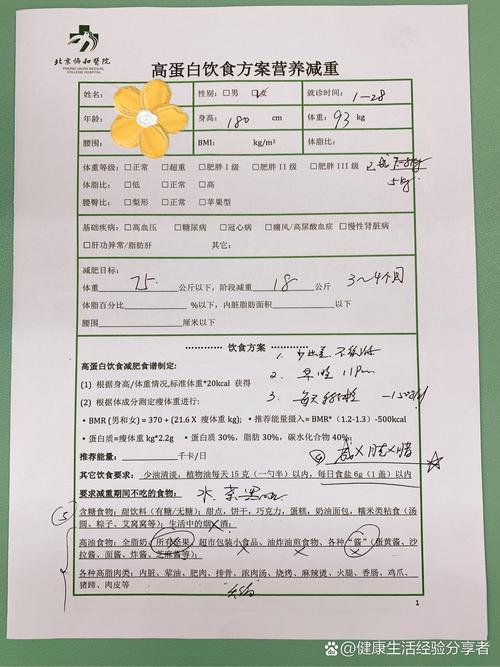 北京协和医院
PEKING UNION MEDICAL
COLLEGE HOSPITAL
高蛋白饮食方案营养减重
姓名: 性别:□男 □女 就诊时间: 1-28
年龄: 身高: 180 cm 体重: 93 kg
腰围: BMI: kg/m² 体脂比:
体重等级:□正常 □超重 □肥胖 I 级 □肥胖 II 级 □肥胖 III 级
5kg
体脂比: □低 □正常 □高
腰臀比: □梨形 □正常 □苹果型
基础疾病:□高血压 □糖尿病 □冠心病 □痛风/高尿酸血症 □慢性肾脏病
□肝功异常/脂肪肝 其它:
减肥目标:
体重 75 公斤以下, 阶段减重 18 公斤 3~4个月
体脂百分比 %以下, 内脏脂肪面积 以下
腰围 厘米以下
饮食方案 1.
高蛋白饮食减肥食谱制定: 2. 早睡 11pm
(1) 根据身高/体重情况,标准体重*20kcal 获得
(2) 根据体成分测定瘦体重进行: 3. 每天
• BMR (男和女) = 370 + (21.6 X 瘦体重 kg); • 推荐能量摄入= BMR* (1.2-1.3) -500kcal
• 蛋白质=瘦体重 kg*2.2g • 蛋白质 30%, 脂肪 30%, 碳水化合物 40%;
推荐能量: 千卡/日 ④
其它饮食要求: 少油清淡, 植物油每天 15 克 (一勺半) 以内, 每日食盐 6g (1 盖) 以内
要求减重期间不吃的食物: 水 茶 黑咖
⑤
含糖食物: 甜饮料 (有糖/无糖); 甜点, 饼干, 巧克力, 蛋糕, 奶油面包, 糯米类粘食 (汤
圆、粽子、艾窝窝等); 生活中的烟酒;
高油食物: 全脂奶 所有坚果 超市包装小食品、油炸油煎食物、各种“酱” (蛋黄酱、沙
拉酱、面酱、炸酱、芝麻酱等);
各种高脂肉类: 内脏、荤油、肥肉、排骨、浓肉汤、烧烤、麻辣烫、火腿、香肠、鸡爪、
猪蹄、肉皮等
1
健康生活经验分享者